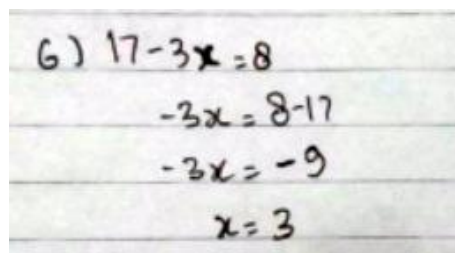 6) 17-3x=8
-3x=8-17
-3x=-9
x=3